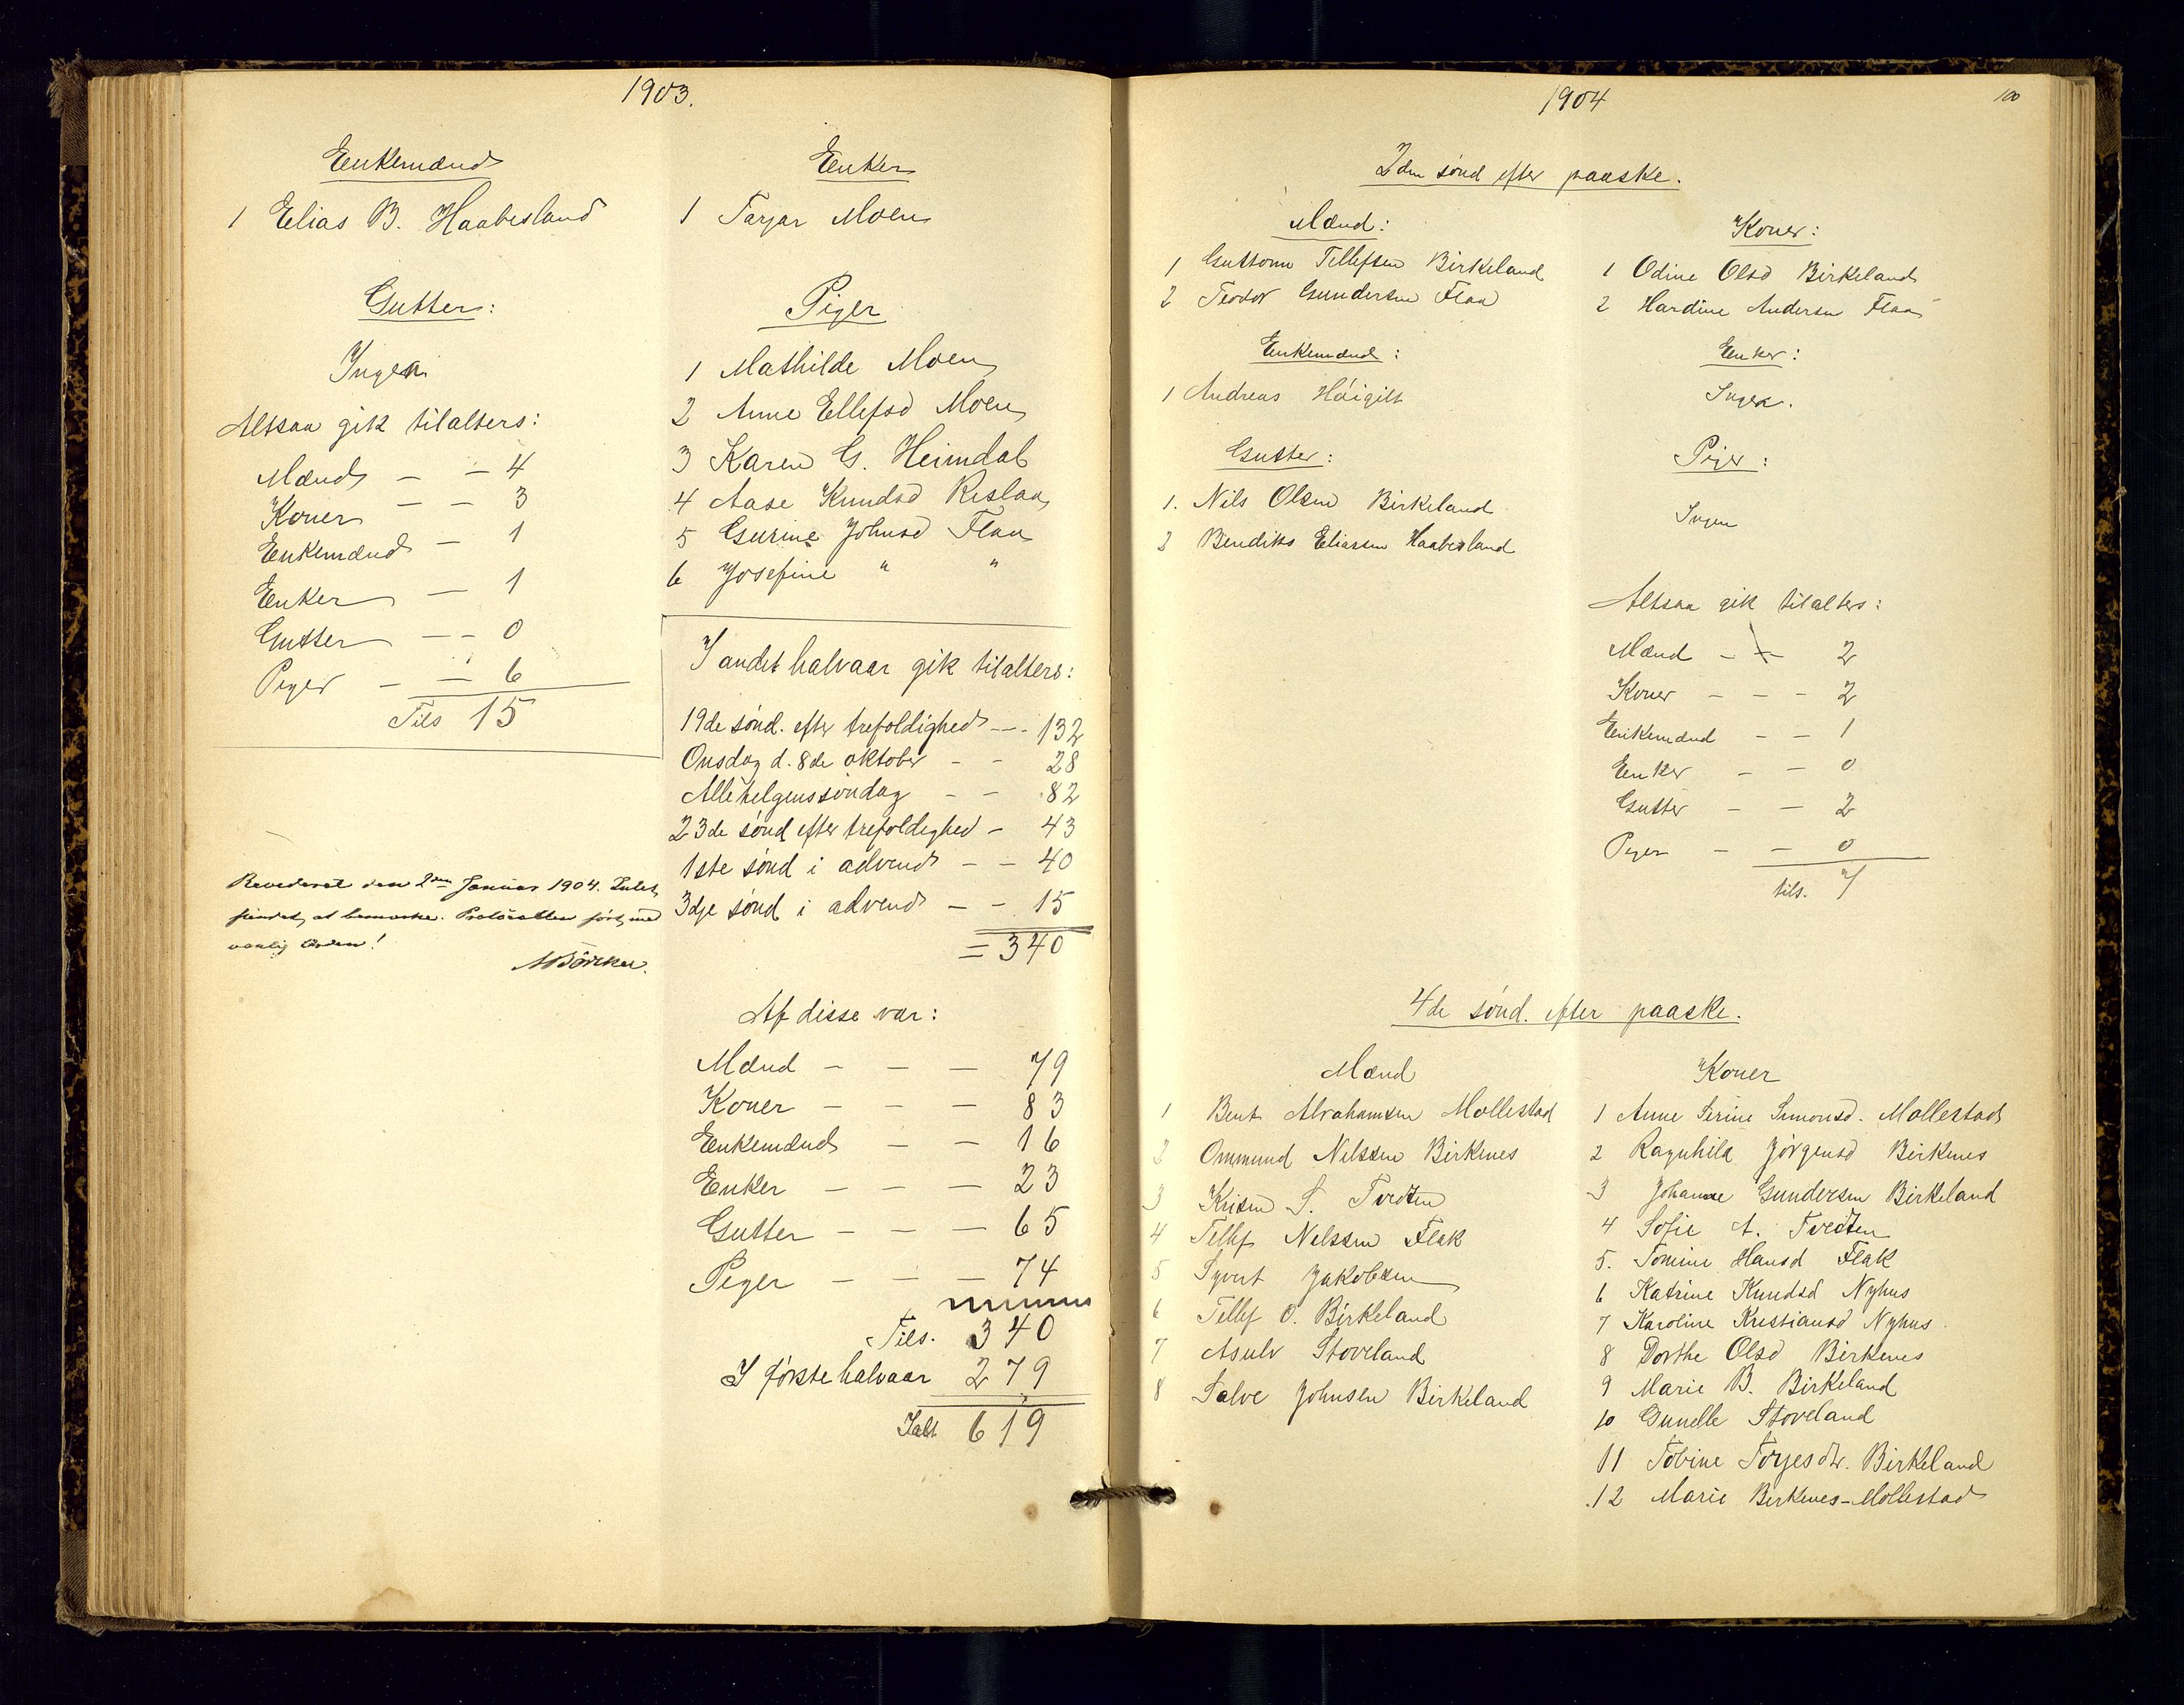 1903.
Enkemænd
1 Elias B. Haabesland
Gutter:
Ingen
Altsaa gik tilalters:
Mænd — — 4
Koner — — 3
Enkemænd — 1
Enker — 1
Gutter — — 0
Piger — — 6
Tils 15
Revideret den 2den Januar 1904. Intet
fundet, at bemærke. Protocollen ført med
vanlig Orden!
Enker
1 Tarjar Moen
Piger
1 Mathilde Moen
2 Anne Ellefsd Moen
3 Karen G. Heimdal
4 Aase Knudsd Rislaa
5 Gurine Johnsd Flaa
6 Josefine " "
I andet halvaar gik tilalters:
19de sønd. efter trefoldighed — — 132
Onsdag d. 8de oktober — — 28
Allehelgenssøndag — — 82
23de sønd efter trefoldighed — 43
1ste sønd i advend — — 40
3dje sønd i advend — — 15
= 340
Af disse var:
Mænd — — — 79
Koner — — — 83
Enkemænd — — 16
Enker — — — 23
Gutter — — — 65
Piger — — — 74
Tils. 340
I første halvaar 279
Ialt 619
1904
100
2den sønd efter paaske.
Mænd:
1 Guttorm Tellefsen Birkeland
2 Teodor Gundersen Flaa
Enkemænd:
1 Andreas Høigilt
Gutter:
1. Nils Olsen Birkeland
2 Bendiks Eliassen Haabesland
Koner:
1 Odine Olsd Birkeland
2 Hardine Andersen Flaa
Enker:
Ingen.
Piger:
Ingen
Altsaa gik tilalters:
Mænd — — 2
Koner — — — 2
Enkemænd — — 1
Enker — — 0
Gutter — — 2
Piger — — 0
tils. 7
4de sønd. efter paaske.
Mænd
1 Bent Abrahamsen Mollestad
2 Ommund Nelssen Birkenes
3 Kristen S. Tveiten
4 Tellef Nelssen Flak
5 Syvert Jakobsen
6 Tellef O. Birkeland
7 Asulv Stoveland
8 Salve Johnsen Birkeland
Koner
1 Anne Serine Simonsd. Mollestad
2 Ragnhild Jørgensd Birkenes
3 Johanne Gundersen Birkeland
4 Sofie A. Tveiten
5. Tomine Hansd Flak
6 Katrine Knudsd Nyhus
7 Karoline Kristiansd Nyhus.
8 Dorthe Olsd Birkenes
9 Marie B. Birkeland
10 Gunelle Stoveland
11 Tobine Torjesdtr. Birkeland
12 Marie Birkenes-Mollestad